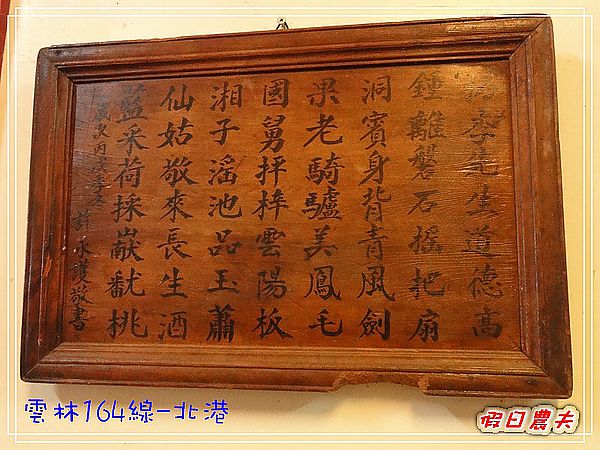 李先生道德高
鍾離磐石搖把扇
洞賓身背青風劍
果老騎驢美鳳毛
國舅抨梓雲陽板
湘子滛池品玉蕭
仙姑敬來長生酒
藍采荷採献飜桃
歲次丙季冬
敬書
雲林164線-北港
假日農夫